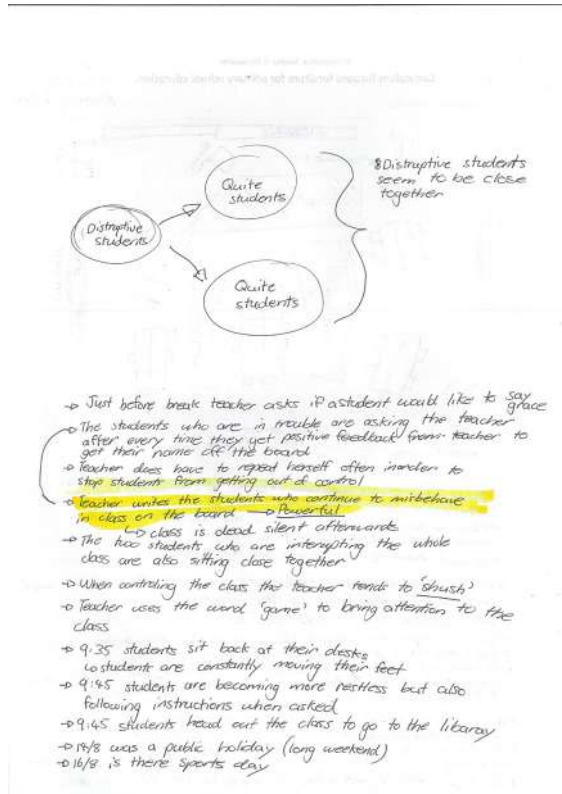 Quite
students
Distruptive
students
Quite
students
Distruptive students
seem to be close
together
→ Just before break teacher asks if a student would like to say
grace
→ The students who are in trouble are asking the teacher
after every time they get positive feedback from teacher to
get their name off the board
→ Teacher does have to repeat herself often inorder to
stop students from getting out of control
→ Teacher writes the students who continue to misbehave
in class on the board → Powerful
↳ class is dead silent afterwards
→ The two students who are interupting the whole
class are also sitting close together
→ When controling the class the teacher tends to 'shush'
→ Teacher uses the word 'game' to bring attention to the
class
→ 9:35 students sit back at their desks
↳ students are constantly moving their feet
→ 9:45 students are becoming more restless but also
following instructions when asked
→ 9:45 students head out the class to go to the libaray
→ 14/8 was a public holiday (long weekend)
→ 16/8 is there sports day